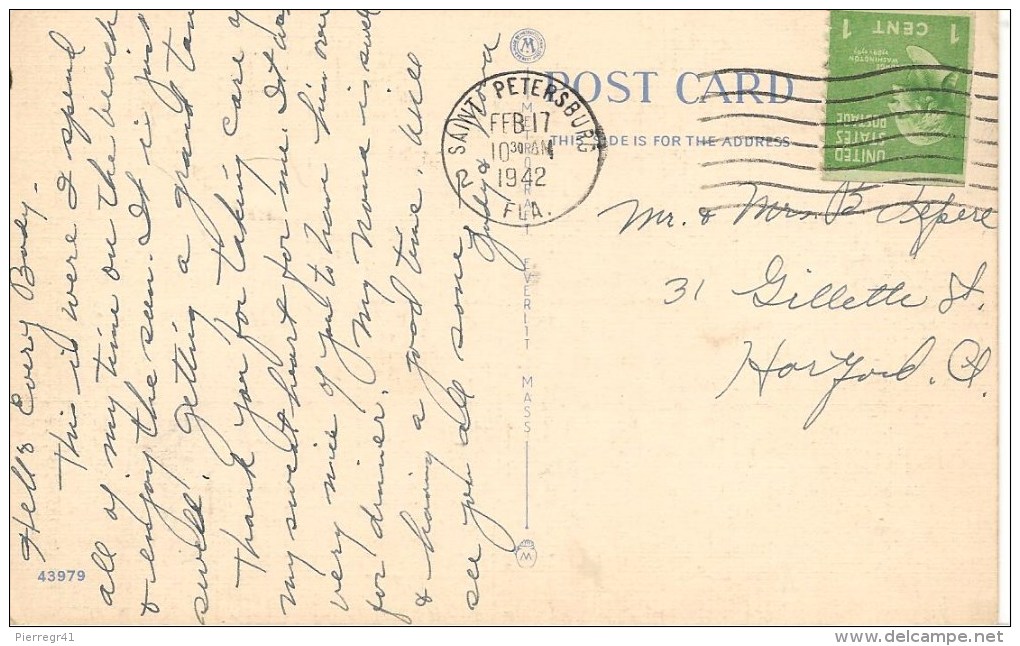 Hello Every Body -
This is were I spend
all of my time on the beach
& enjoy the seen. It is just
swell! getting a grand tan
Thank you for taking care of
my sweet heart for me. It was
very nice of you to have him over
for dinner. My Moma is swell
& having a good time. Will
see you all some
43979
POST CARD
THIS SIDE IS FOR THE ADDRESS
SAINT PETERSBURG
FEB 17
10 30 AM
1942
FLA.
2
1 CENT
GEORGE
WASHINGTON
UNITED
STATES
POSTAGE
EVERETT MASS
Mr. & Mrs. B
31 Gillette St.
Harford. Ct.
Pierregr41
www.delcampe.net